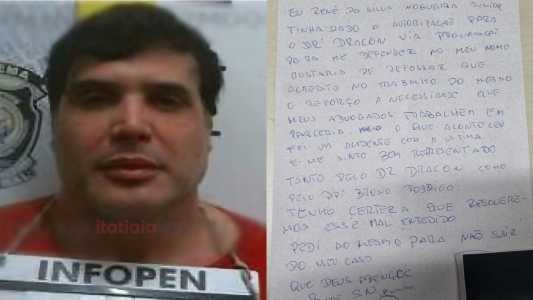 itatiaia
INFOPEN
EU RENÊ DA SILVA NOGUEIRA JUNIOR
TINHA DADO A AUTORIZAÇÃO PARA
O DR: DRACON VIA PROCURAÇÃO
PARA ME DEFENDER NO MEU NOME
GOSTARIA DE REFORÇAR QUE
ACREDITO NO TRABALHO DO MESMO
O REFORÇO A NECESSIDADE QUE
MEUS ADVOGADOS TRABALHEM EM
PARCERIA O QUE ACONTECEU
FOI UM ACIDENTE COM A VITIMA
E ME SINTO BEM REPRESENTADO
TANTO PELO DR DRACON COMO
PELO DR: BRUNO RODRIGO
TENHO CERTEZA QUE RESOLVERE-
MOS ESSE MAL ENTENDIDO
PEDI AO MESMO PARA NÃO SAIR
DO MEU CASO
QUE DEUS ABENÇOE